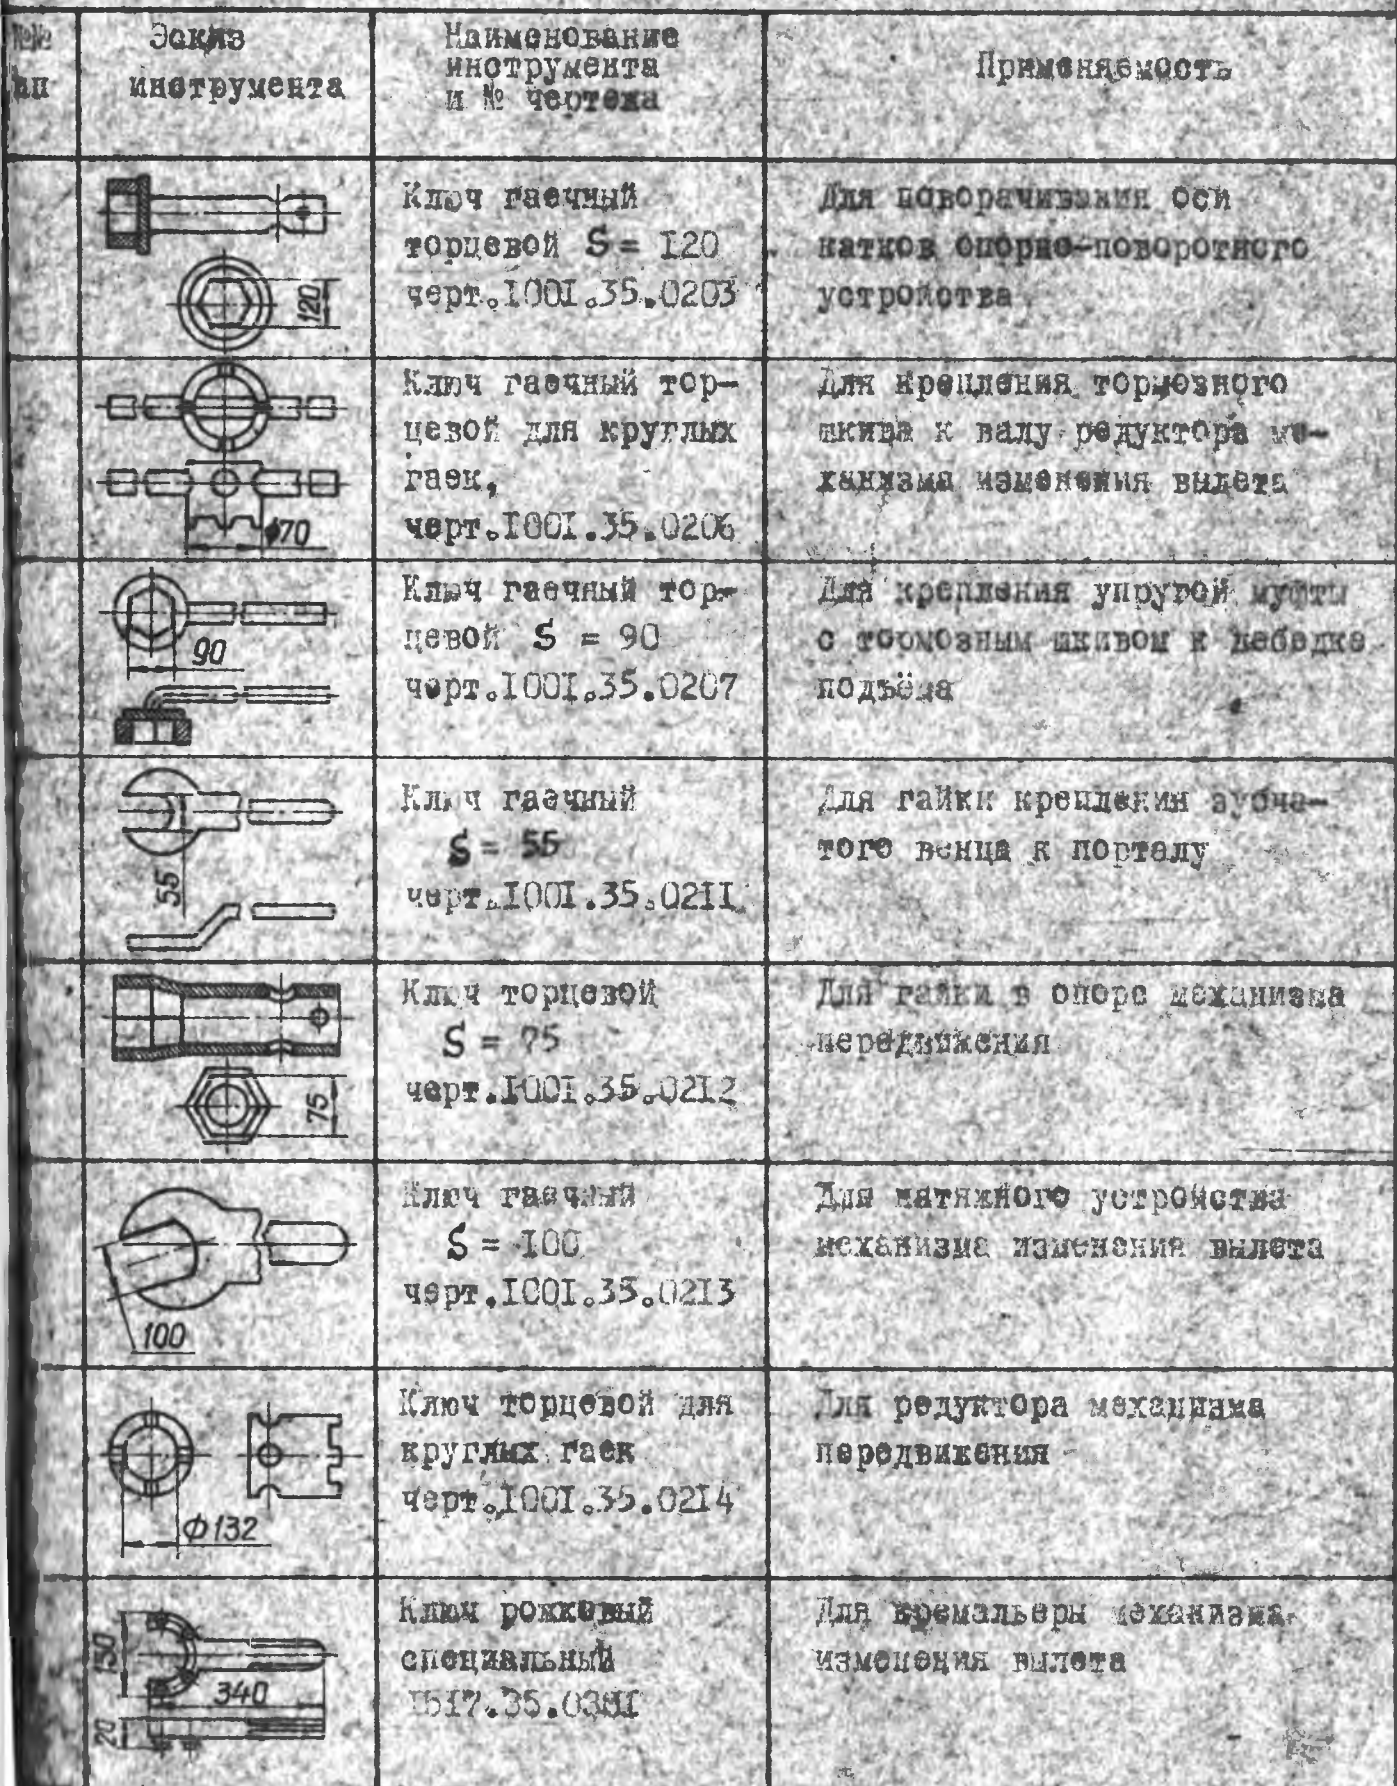 №№
пп
Эскиз
инструмента
Наименование
инструмента
и № чертежа
Применяемость
120
Ключ гаечный
торцевой S = 120
черт.1001.35.0203
Для поворачивания оси
катков опорно-поворотного
устройства
ф70
Ключ гаечный тор-
цевой для круглых
гаек,
черт.1001.35.0206
Для крепления тормозного
шкива к валу редуктора ме-
ханизма изменения вылета
90
Ключ гаечный тор-
цевой S = 90
черт.1001.35.0207
Для крепления упругой муфты
с тормозным шкивом к лебедке
подъёма
55
Ключ гаечный
S = 55
черт.1001.35.0211
Для гайки крепления зубча-
того венца к порталу
75
Ключ торцевой
S = 75
черт.1001.35.0212
Для гайки в опоре механизма
передвижения
100
Ключ гаечный
S = 100
черт.1001.35.0213
Для натяжного устройства
механизма изменения вылета
ф132
Ключ торцевой для
круглых гаек
черт.1001.35.0214
Для редуктора механизма
передвижения
340
20
Ключ рожковый
специальный
Для кремальеры механизма
изменения вылета